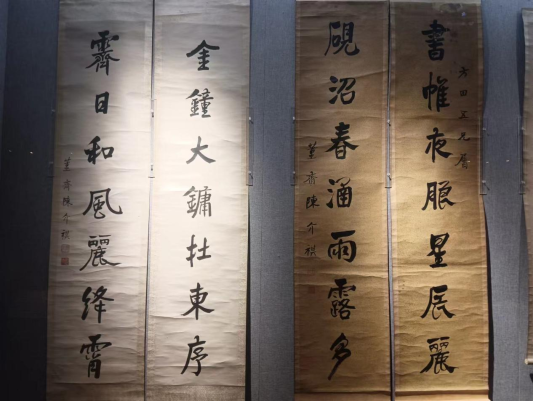 方田五兄屬
書帷夜朖星辰麗
硯沼春涵雨露多
簠齋陳介祺
金鐘大鏞扗東序
霽日和風麗絳霄
簠齋陳介祺